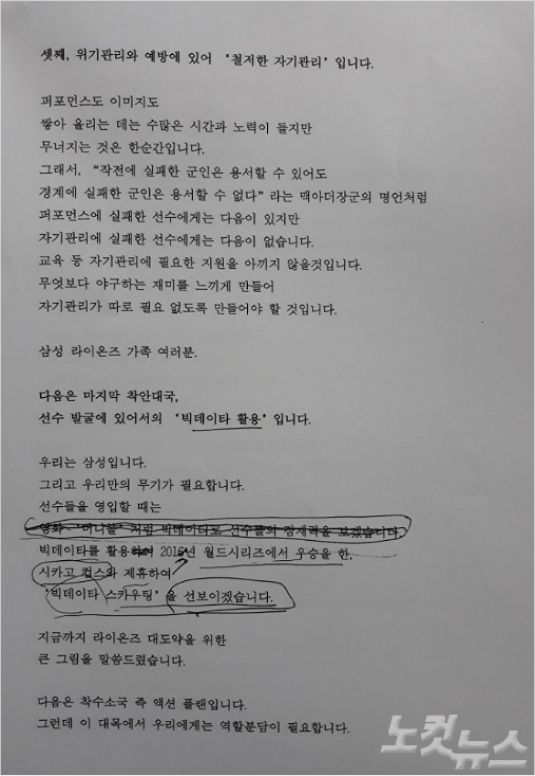 셋째, 위기관리와 예방에 있어 '철저한 자기관리' 입니다.
퍼포먼스도 이미지도
쌓아 올리는 데는 수많은 시간과 노력이 들지만
무너지는 것은 한순간입니다.
그래서, "작전에 실패한 군인은 용서할 수 있어도
경계에 실패한 군인은 용서할 수 없다" 라는 맥아더장군의 명언처럼
퍼포먼스에 실패한 선수에게는 다음이 있지만
자기관리에 실패한 선수에게는 다음이 없습니다.
교육 등 자기관리에 필요한 지원을 아끼지 않을것입니다.
무엇보다 야구하는 재미를 느끼게 만들어
자기관리가 따로 필요 없도록 만들어야 할 것입니다.
삼성 라이온즈 가족 여러분.
다음은 마지막 착안대국,
선수 발굴에 있어서의 '빅데이타 활용' 입니다.
우리는 삼성입니다.
그리고 우리만의 무기가 필요합니다.
선수들을 영입할 때는
영화 '머니볼' 처럼 빅데이타로 선수들의 잠재력을 보겠습니다.
빅데이타를 활용하여 2016년 월드시리즈에서 우승을 한,
시카고 컵스와 제휴하여
'빅데이타 스카우팅' 을 선보이겠습니다.
지금까지 라이온즈 대도약을 위한
큰 그림을 말씀드렸습니다.
다음은 착수소국 즉 액션 플랜입니다.
그런데 이 대목에서 우리에게는 역할분담이 필요합니다.
노컷뉴스